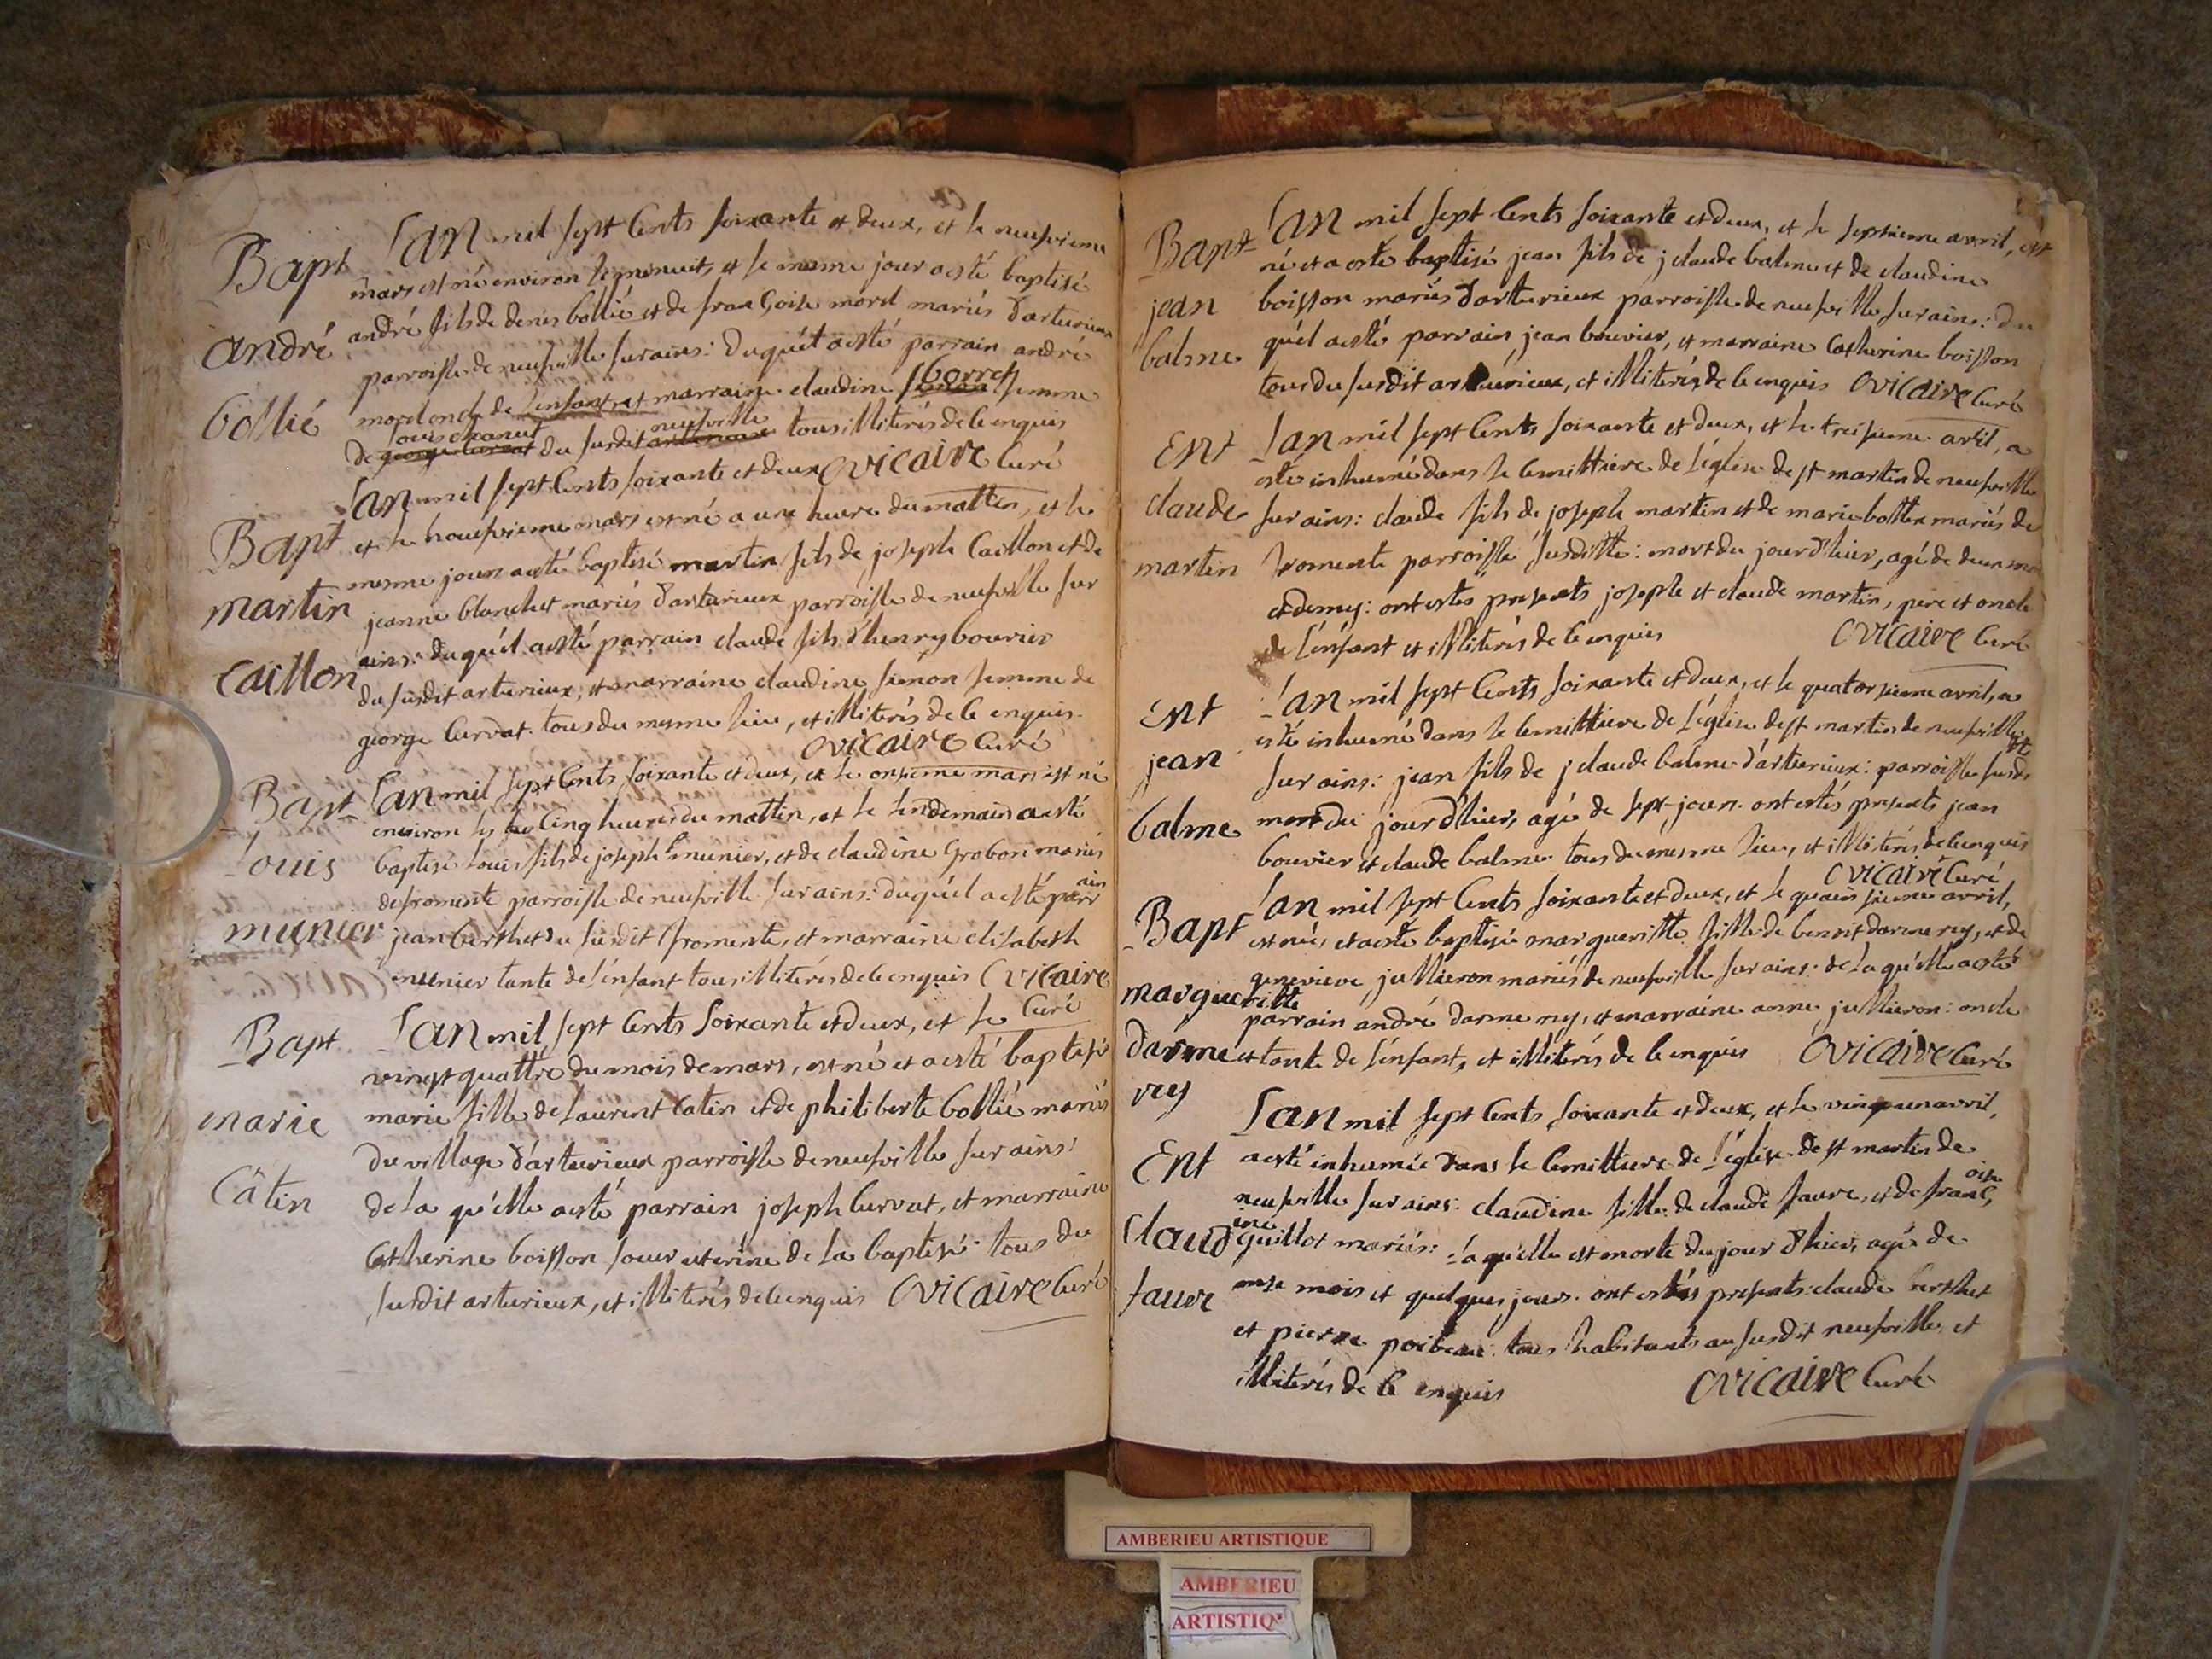 Bapt
André
bollié
L'an mil sept Cents soixante et deux, et le neufvieme
mars est né environ le minuit, et le mesme jour a esté baptisé
andré fils de denis bollié et de françoise morel mariés d'arturieux
parroisse de neufville sur ains: duquél a esté parrain andré
morel oncle de l'enfant et marraine claudine borret femme
de louis chanut du susdit neufville tous illiterés de ce enquis
OVICAIRE Curé
Bapt
martin
Caillon
L'an mil sept Cents soixante et deux
et le noeufvieme mars est né a une heure du mattin, et le
mesme jour a esté baptisé martin fils de joseph Caillon et de
jeanne blanchet mariés d'arturieux parroisse de neufville sur
ains: duquél a esté parrain claude fils d'henry bouvier
du susdit arturieux, et marraine claudine simon femme de
george Curvat. tous du mesme lieu, et illiterés de ce enquis.
OVICAIRE Curé
Bapt
Louis
munier
L'an mil sept Cents soixante et deux, et le onzieme mars est né
environ les Cinq heures du mattin, et le lendemain a esté
baptisé Louis fils de joseph munier, et de claudine Grobon mariés
de fromente parroisse de neufville sur ains: duquél a esté parrain
jean berthet du susdit fromente, et marraine elizabeth
munier tante de l'enfant tous illiterés de ce enquis OVICAIRE
Curé
Bapt
marie
Câtin
L'an mil sept Cents soixante et deux, et le
vingt quattre du mois de mars, est né et a esté baptisé
marie fille de Laurent Catin et de philiberte bollié mariés
du village d'arturieux parroisse de neufville sur ains:
de la qu'elle a esté parrain joseph Curvat, et marraine
Catherine boisson soeur uterine de la baptisé. tous du
susdit arturieux, et illiterés de ce enquis OVICAIRE Curé
Bapt
jean
balme
L'an mil sept Cents soixante et deux, et le septieme avril, est
né et a esté baptisé jean fils de j claude balme et de claudine
boisson mariés d'arturieux parroisse de neufville sur ains: du
quél a esté parrain jean bouvier, et marraine Catherine boisson
tous du susdit arturieux, et illiterés de ce enquis OVICAIRE Curé
Ent
claude
martin
L'an mil sept Cents soixante et deux, et le treisieme avril, a
esté inhumé dans le Cemittiere de l'église de st martin de neufville
sur ains: claude fils de joseph martin et de marie bottex mariés de
fromente parroisse susditte: mort du jour d'hier, agé de deux mois
et demy: ont estés presents joseph et claude martin, pere et oncle
de l'énfant et illiterés de ce enquis OVICAIRE Curé
Ent
jean
balme
L'an mil sept Cents soixante et deux, et le quatorsieme avril, a
esté inhumé dans le Cemittiere de l'église de st martin de neufville
sur ains: jean fils de j claude balme d'arturieux: parroisse susditte
mort du jour d'hier, agé de sept jours. ont estés presents jean
bouvier et claude balme tous du mesme lieu, et illiterés de ce enquis
OVICAIRE Curé
Bapt
marguerite
darme
rey
L'an mil sept Cents soixante et deux, et le quainsieme avril,
est née, et a esté baptisée margueritte fille de benoit darme rey, et de
genevieve jullieron mariés de neufville sur ains: de la qu'elle a esté
parrain andré darme rey, et marraine anne jullieron: oncle
et tante de l'énfant, et illiterés de ce enquis OVICAIRE Curé
Ent
claudine
faure
L'an mil sept Cents soixante et deux, et le vingt un avril,
a esté inhumée dans le Cemittiere de l'église de st martin de
neufville sur ains: claudine fille de claude faure, et de françoise
guillot mariés: la qu'elle est morte du jour d'hier, agé de
onze mois et quelques jours. ont estés presents: claude berthet
et pierre poibeau tous habitants au susdit neufville, et
illiterés de ce enquis OVICAIRE Curé
AMBERIEU ARTISTIQUE
AMBERIEU
ARTISTIQ